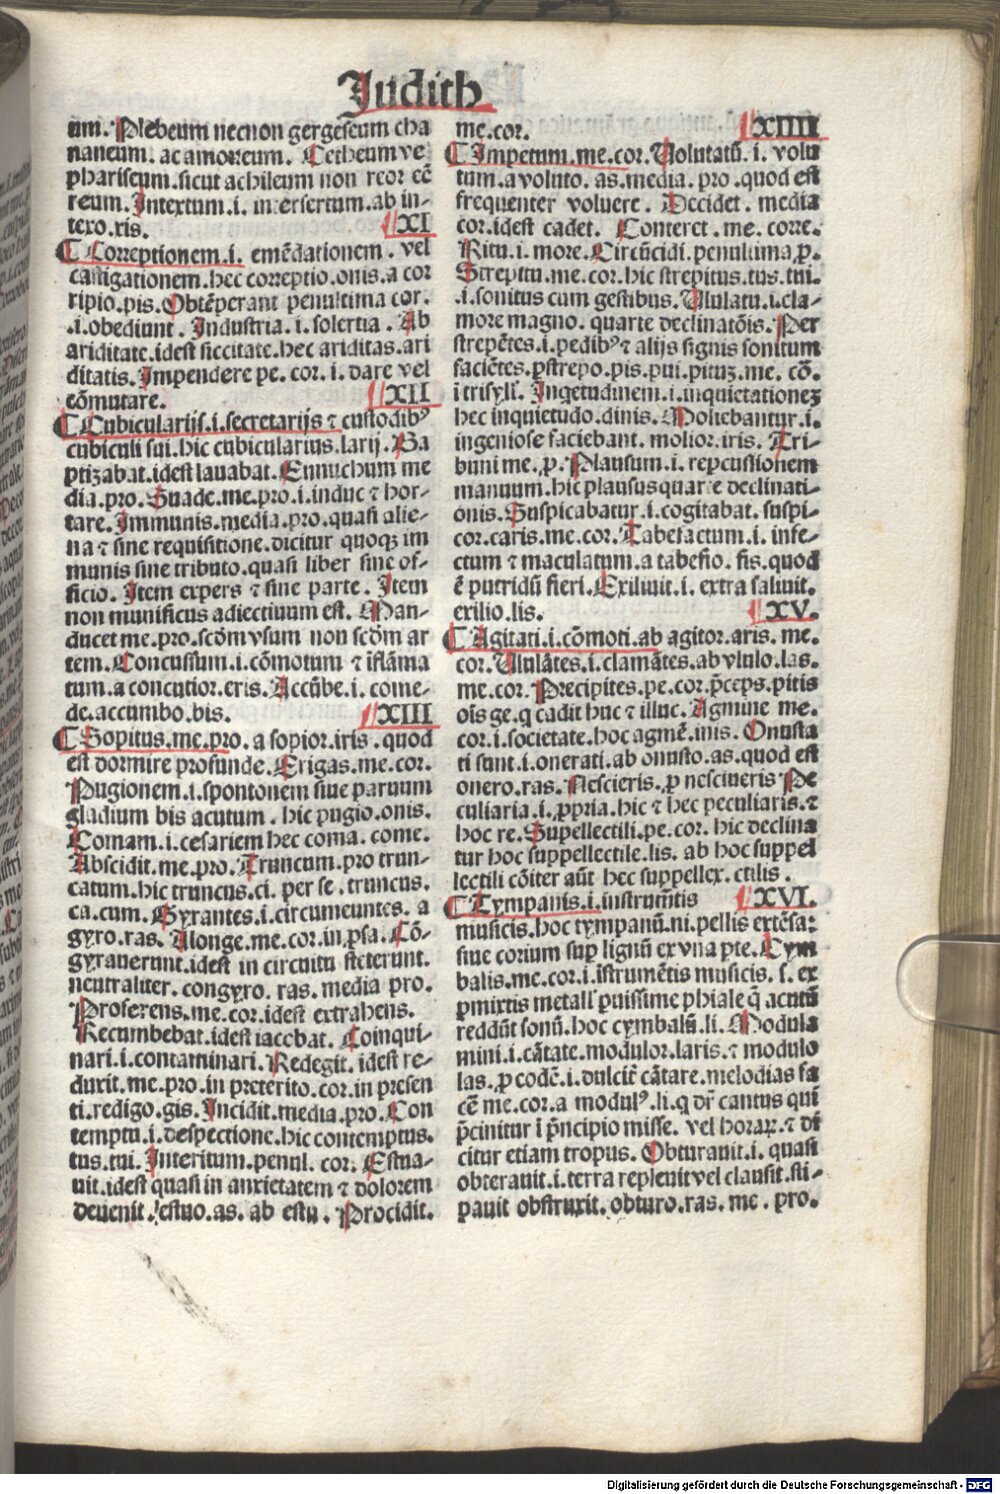 Judith
um. Plebeum necnon gergeseum cha
naneum. ac amorreum. Cetheum ve
phariseum. sicut achileum non reor eē
reum. Intextum .i. insersertum. ab in-
texo. xis. XI
Correptionem .i. emēdationem. vel
castigationem. hec correptio. onis. a cor
ripio. pis. Obtēperant penultima cor.
.i. obediunt. Industria .i. solertia. Ab
ariditate. idest siccitate. hec ariditas. ari
ditatis. Impendere pe. cor. i. dare vel
cōmutare. XII
Cubicularijs .i. secretarijs ⁊ custodibꝰ
cubiculi sui. hic cubicularius. larij. Ba
ptizabat. idest lauabat. Eunuchum me
dia. pro. Suade. me. pro. i. induc ⁊ hor-
tare. Immunis. media. pro. quasi alie-
na ⁊ sine requisitione. dicitur quoqꝫ im
munis sine tributo. quasi liber sine of-
ficio. Item expers ⁊ sine parte. Item
non munificus adiectiuum est. Man-
ducet me. pro. scōm vsum non scōm ar
tem. Concussum .i. cōmotum ⁊ īflāma
tum. a concutior. eris. Accūbe .i. come-
de. accumbo. bis. XIII
Sopitus. me. pro. a sopior. iris. quod
est dormire profunde. Erigas. me. cor.
Pugionem .i. spontonem siue paruum
gladium bis acutum. hic pugio. onis.
Comam .i. cesariem hec coma. come.
Abscidit. me. pro. Truncum. pro trun-
catum. hic truncus. ci. per se. truncus.
ca. cum. Gyrantes .i. circumeuntes. a
gyro. ras. Alonge. me. cor. in ꝓsa. Cō-
gyrauerunt. idest in circuitu steterunt.
neutraliter. congyro. ras. media pro.
Proferens. me. cor. idest extrahens.
Recumbebat. idest iacebat. Coinqui-
nari .i. contaminari. Redegit. idest re-
duxit. me. pro. in preterito. cor. in presen
ti. redigo. gis. Incidit. media. pro. Con
temptu .i. despectione. hic contemptus.
tus. tui. Interitum. penul. cor. Estua-
uit. idest quasi in anxietatem ⁊ dolorem
deuenit. estuo. as. ab estu. Procidit.
me. cor. XIIII
Impetum. me. cor. Volutatū .i. volu
tum. a voluto. as. media. pro. quod est
frequenter voluere. Decidet. media
cor. idest cadet. Conteret. me. corre.
Ritu .i. more. Circūcidi. penultima ꝓ.
Strepitu. me. cor. hic strepitus. tus. tui.
.i. sonitus cum gestibus. Vlulatu .i. cla-
more magno. quarte declinatōis. Per
strepētes .i. pedibꝰ ⁊ alijs signis sonitum
faciētes. ꝑstrepo. pis. pui. pituꝫ. me. cō.
i trisyli. Inqetudinem .i. inquietationeꝫ
hec inquietudo. dinis. Moliebantur .i.
ingeniose faciebant. molior. iris. Tri-
buni me. ꝓ. Plausum .i. repcussionem
manuum. hic plausus quarte declinati-
onis. Suspicabatur .i. cogitabat. suspi-
cor. caris. me. cor. Tabefactum .i. infe-
ctum ⁊ maculatum. a tabefio. fis. quod
ē putridū fieri. Exiliuit .i. extra saluit.
exilio. lis. XV.
Agitati .i. cōmoti. ab agitor. aris. me.
cor. Vlulātes .i. clamātes. ab vlulo. las.
me. cor. Precipites. pe. cor. p̄ceps. pitis
oīs ge. q cadit huc ⁊ illuc. Agmine me.
cor. i. societate. hoc agmē. inis. Onusta
ti sunt .i. onerati. ab onusto. as. quod est
onero. ras. Nescieris. ꝓ nesciueris Pe
culiaria .i. ꝓpria. hic ⁊ hec peculiaris. ⁊
hoc re. Supellectili. pe. cor. hic declina
tur hoc suppellectile. lis. ab hoc suppel
lectili cōiter aūt hec suppellex. ctilis.
Tympanis .i. instrum̄tis XVI.
musicis. hoc tympanū. ni. pellis extēsa:
siue corium sup lignū ex vna ꝑte. Cym
balis. me. cor. i. īstrumētis musicis. s. ex
ꝑmixtis metall' puissime phiale q̄ acutū
reddūt sonū. hoc cymbalū. li. Modula
mini .i. cātate. modulor. laris. ⁊ modulo
las. ꝓ codē. i. dulcit̄ cātare. melodias fa
cē me. cor. a modulꝰ. li. q dr̄ cantus qui
p̄cinitur ī p̄ncipio misse. vel horaꝝ. ⁊ di
citur etiam tropus. Obturauit .i. quasi
obterauit .i. terra repleuit vel clausit. sti-
pauit obstruxit. obturo. ras. me. pro.
Digitalisierung gefördert durch die Deutsche Forschungsgemeinschaft - DFG